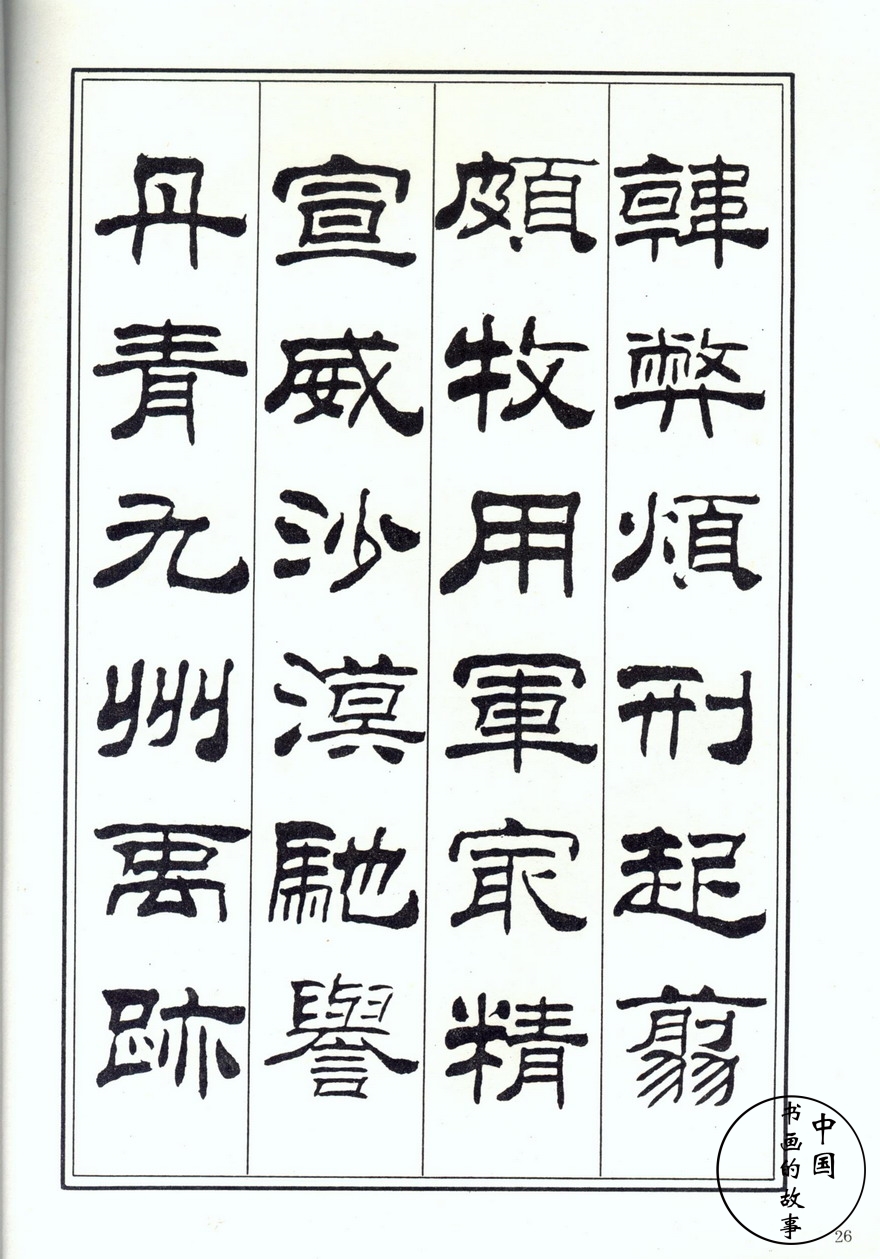 韓弊煩刑起翦
頗牧用軍㝡精
宣威沙漠馳譽
丹青九州禹跡
中国
书画的故事
26